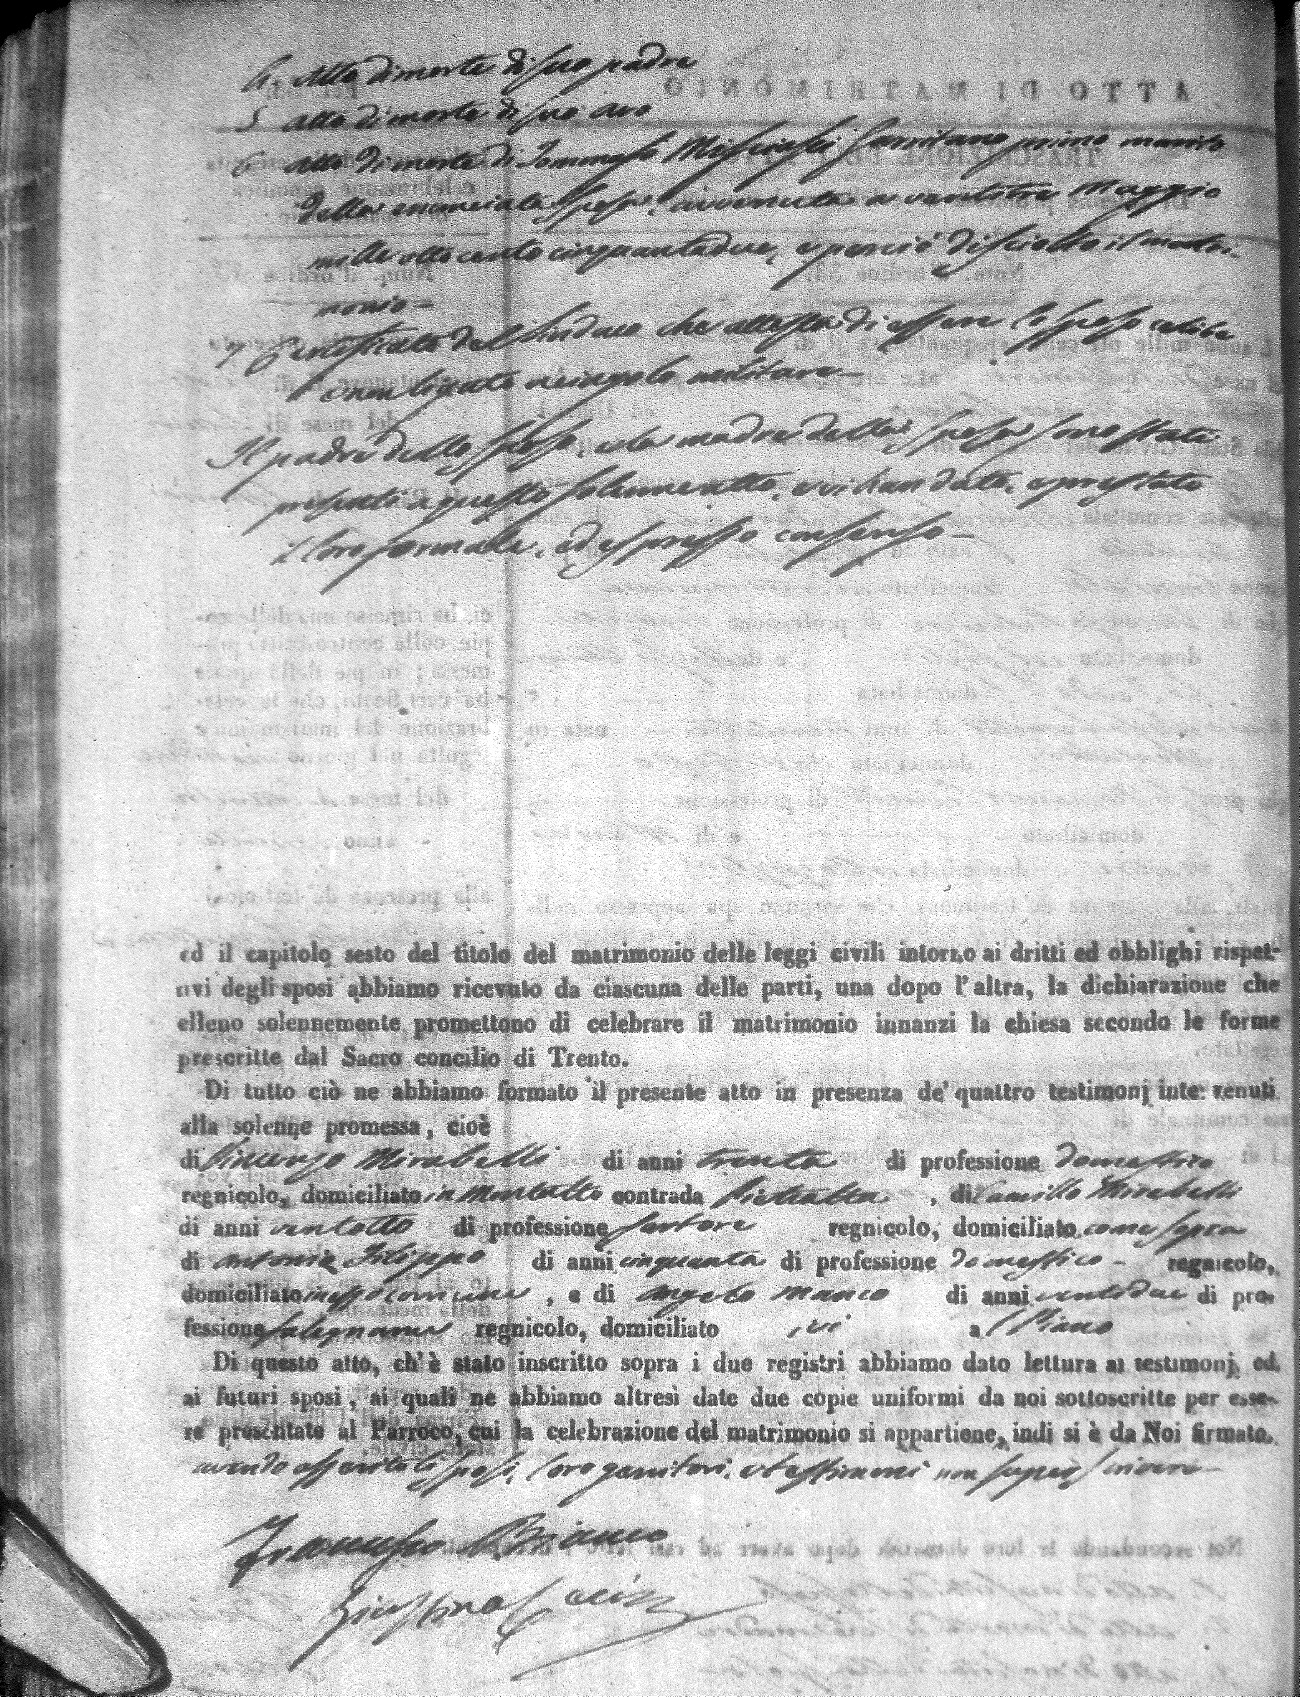 4. Atto di morte di suo padre
5 atto di morte di suo avo
6 atto di morte di Tommaso primo marito
della enunciata Sposa, avvenuta a ventotto Maggio
mille ottocento cinquantadue, e perciò disciolto il matri-
monio—
7 Certificato del Sindaco che attesta di essere lo sposo celibe
e non legato a cingolo militare—
Il padre dello sposo, e la madre della sposa sono stati
presenti a questo solenne atto, e vi han dato, e prestato
il loro formale, ed espresso consenso—
ed il capitolo sesto del titolo del matrimonio delle leggi civili intorno ai dritti ed obblighi rispet-
tivi degli sposi abbiamo ricevuto da ciascuna delle parti, una dopo l'altra, la dichiarazione che
elleno solennemente promettono di celebrare il matrimonio innanzi la chiesa secondo le forme
prescritte dal Sacro concilio di Trento.
Di tutto ciò ne abbiamo formato il presente atto in presenza de' quattro testimonj intervenuti
alla solenne promessa, cioè
di Vincenzo Mirabelli di anni trenta di professione domestico
regnicolo, domiciliato in Montalto contrada , di Camillo Mirabelli
di anni ventotto di professione sartore regnicolo, domiciliato come sopra
di Antonio Filippo di anni cinquanta di professione domestico - regnicolo,
domiciliato in esso comune , e di Angelo Manco di anni ventidue di pro-
fessione falegname regnicolo, domiciliato ivi a Piano
Di questo atto, ch'è stato inscritto sopra i due registri abbiamo dato lettura ai testimonj, ed
ai futuri sposi, ai quali ne abbiamo altresì date due copie uniformi da noi sottoscritte per esse-
re presentate al Parroco, cui la celebrazione del matrimonio si appartiene, indi si è da Noi firmato.
avendo asserito gli sposi, loro genitori, e testimoni non sapere scrivere—
Francesco Bianco
Giustino